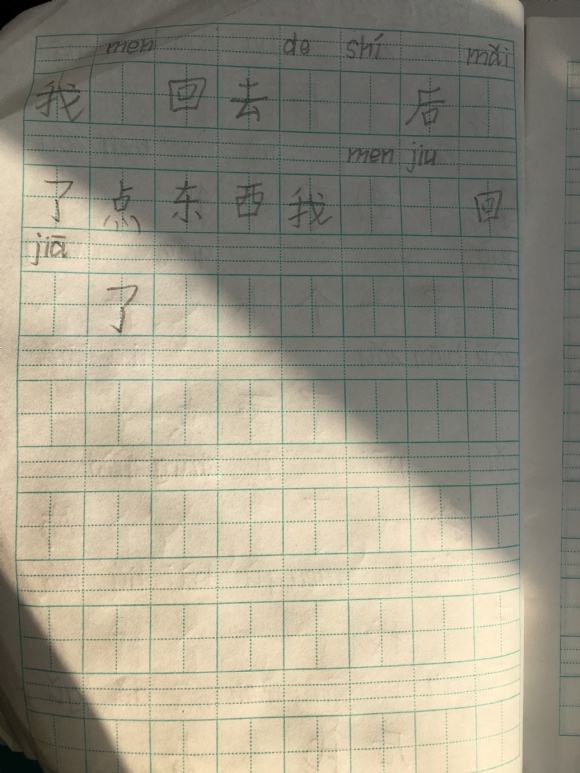 men de shí mǎi
我 回 去 后
men jiu
了 点 东 西 我 回
jiā
了